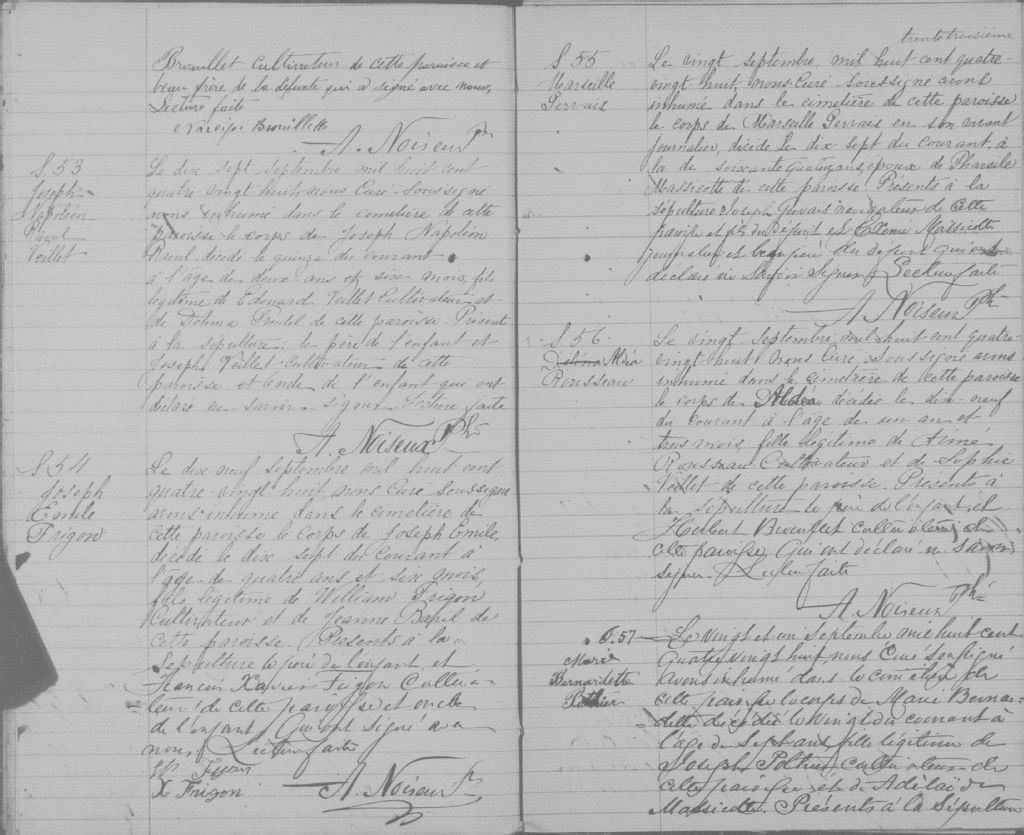 Brouillet cultivateur de cette paroisse et
beau frère de la défunte qui a signé avec nous,
Lecture faite
Narcisse Brouillett
A. Noiseux Ptr
S. 53
Joseph
Napoléon
Raoul
Veillet
Le dix sept septembre mil huit cent
quatre vingt huit, nous Curé soussigné
avons inhumé dans le cemetière de cette
paroisse le corps de Joseph Napoléon
Raoul décédé le quinze du courant
à l'âge de deux ans et six mois, fils
légitime de Edouard Veillet Cultivateur et
de Délima Trudel de cette paroisse. Présents
à la sépulture: le père de l'enfant et
Joseph Veillet cultivateur de cette
paroisse et oncle de l'enfant qui ont
déclaré ne savoir signer Lecture faite
A. Noiseux Ptr
S 54
Joseph
Emile
Frigon
Le dix neuf septembre mil huit cent
quatre-vingt huit, nous Curé soussigné
avons inhumé dans le cemetière de
cette paroisse le corps de Joseph Emile,
décédé le dix sept du courant à
l'âge de quatre ans et six mois,
fils légitime de William Frigon
Cultivateur et de Jeanne Baril de
cette paroisse. Présents à la
sépulture le père de l'enfant, et
François Xavier Frigon Cultiva-
teur de cette paroisse et oncle
de l'enfant Qui ont signé avec
nous Lecture faite
W Frigon
X Frigon
A. Noiseux Ptr
trente troisième
S 55
Marseille
Gervais
Le vingt septembre, mil huit cent quatre-
vingt-huit, nous Curé soussigné avons
inhumé dans le cimetière de cette paroisse
le corps de Marseille Gervais en son vivant
journalier, décédé le dix sept du courant, à
la de soixante quatre ans, époux de Tharsile
Massicotte de cette paroisse Présents à la
sépulture Joseph Gervais navigateur de cette
paroisse et fils du défunt et Massicotte
journalier et beau frère du défunt qui ont
déclaré ne savoir signer Lecture faite
A Noiseux Ptr
S. 56
Délina Aldéa
Rousseau
Le vingt septembre mil huit cent quatre-
vingt huit nous Curé soussigné avons
inhumé dans le cimetière de cette paroisse
le corps de Aldéa, décédée le dix-neuf
du courant à l'âge de un an et
trois mois, fille légitime de Aimé
Rousseau Cultivateur et de Sophie
Veillet de cette paroisse. Présents à
la sépulture le père de l'enfant et
Herbert Brouillet cultivateur de
cette paroisse Qui ont déclaré ne savoir
signer. Lecture faite
A Noiseux Ptr
S. 57
Marie
Bernardette
Pothier
Le vingt et un septembre mil huit cent
quatre vingt huit, nous Curé soussigné
avons inhumé dans le cimetière de
cette paroisse le corps de Marie Bernar-
dette décédée le vingt du courant à
l'âge de sept ans fille légitime de
Joseph Pothier cultivateur de
cette paroisse et de Adélaïde
Massicotte. Présents à la sépulture